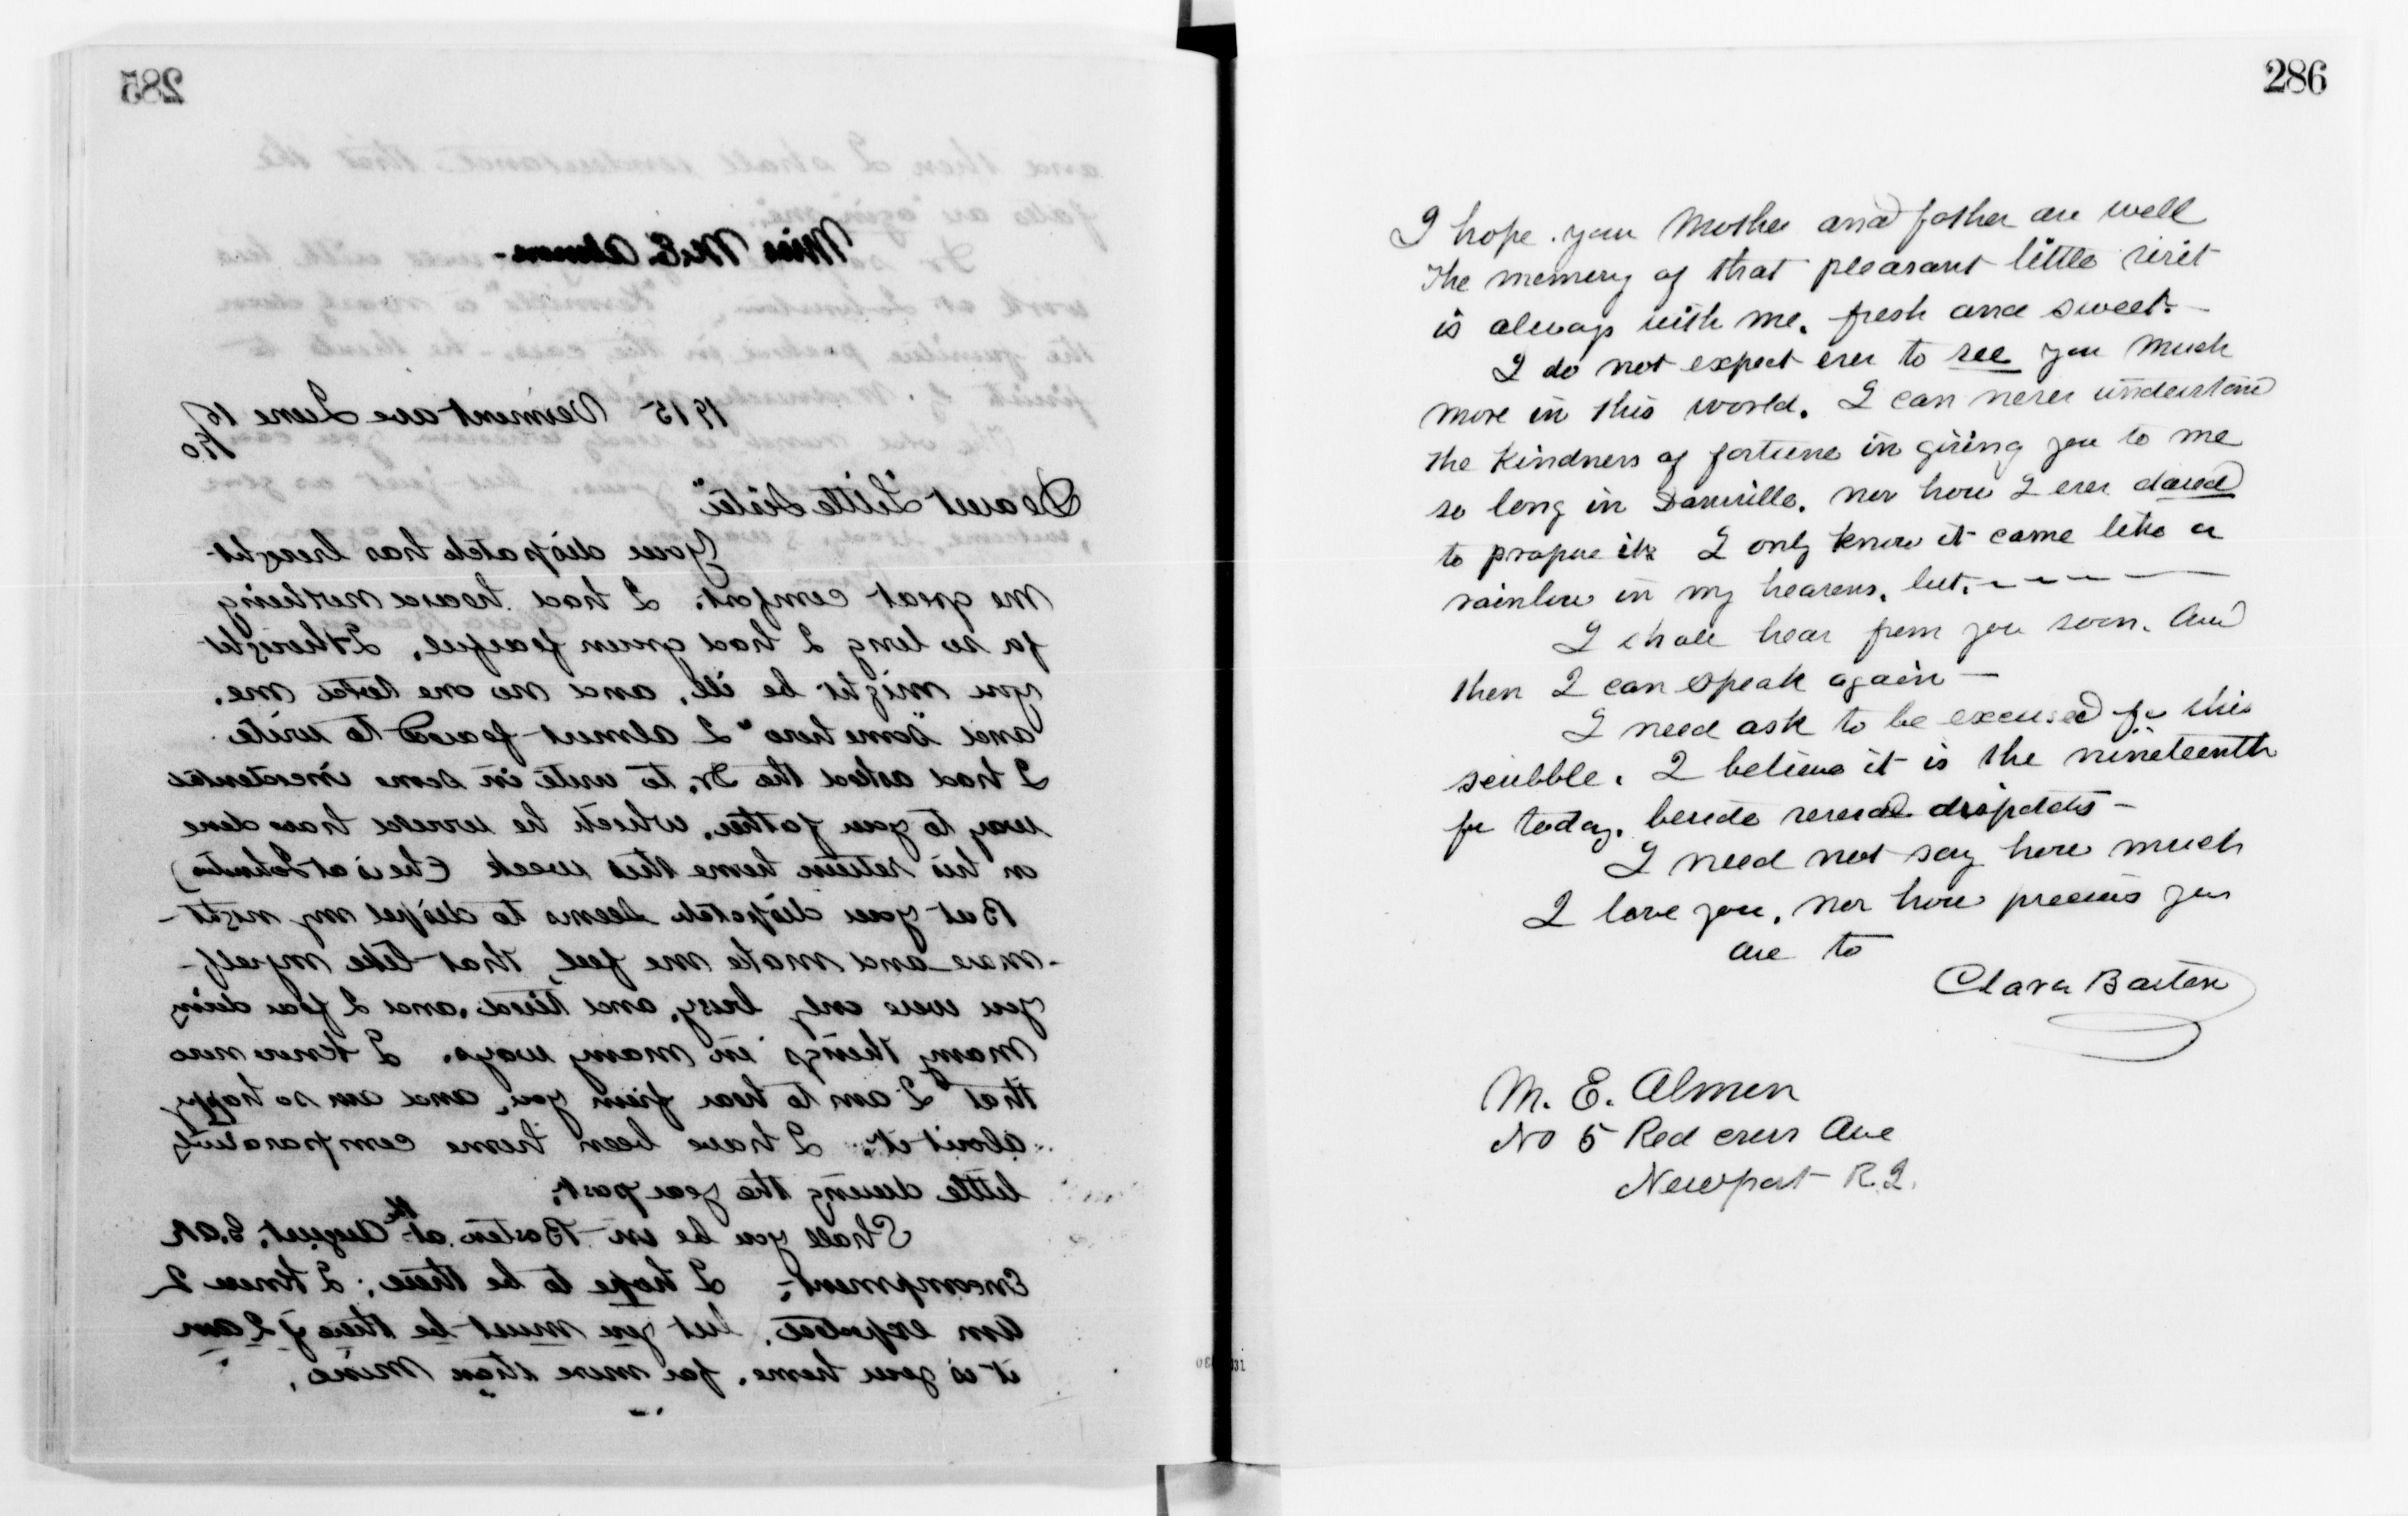 285
Miss M.E. Almon -
1915 Vermont ave June 16
/90
Dearest "Little Sister"
Your dispatch has brought
me great comfort. I had heard nothing
for so long I had grown fearful, I thought
you might be ill, and no one told me.
and "somehow" I almost feared to write
I had asked the Dr. to write in some incidental
way to your father, which he would have done
on his return home this week (he is at Johnstn)
But your dispatch seems to dispel my night-
-mare and make me feel, that like myself,-
you were only busy, and tired, and I fear doing
many things in many ways. I know now
that I am to hear from you, and am so happy
about it. I have been home comparatively
little during the year past.
Shall you be in Boston at the August G.A.R.
Encampment. I hope to be there; I know I
am expected. but you must be there if I am
it is your home, far more than mine.
286
I hope your Mother and father are well
The memory of that pleasant little visit
is always with me, fresh and sweet. -
I do not expect ever to see you much
more in this world. I can never understand
the kindness of fortune in giving you to me
so long in Dansville. nor how I ever dared
to propose it. I only know it came like a
rainbow in my heavens, but. - - - -
I shall hear from you soon. And
then I can speak again -
I need ask to be excused for this
scribble. I believe it is the nineteenth
for today. beside several dispatches -
I need not say how much
I love you, nor how precious you
are to
Clara Barton
M. E. Almon
No 5 Red cross Ave
Newport R.I.